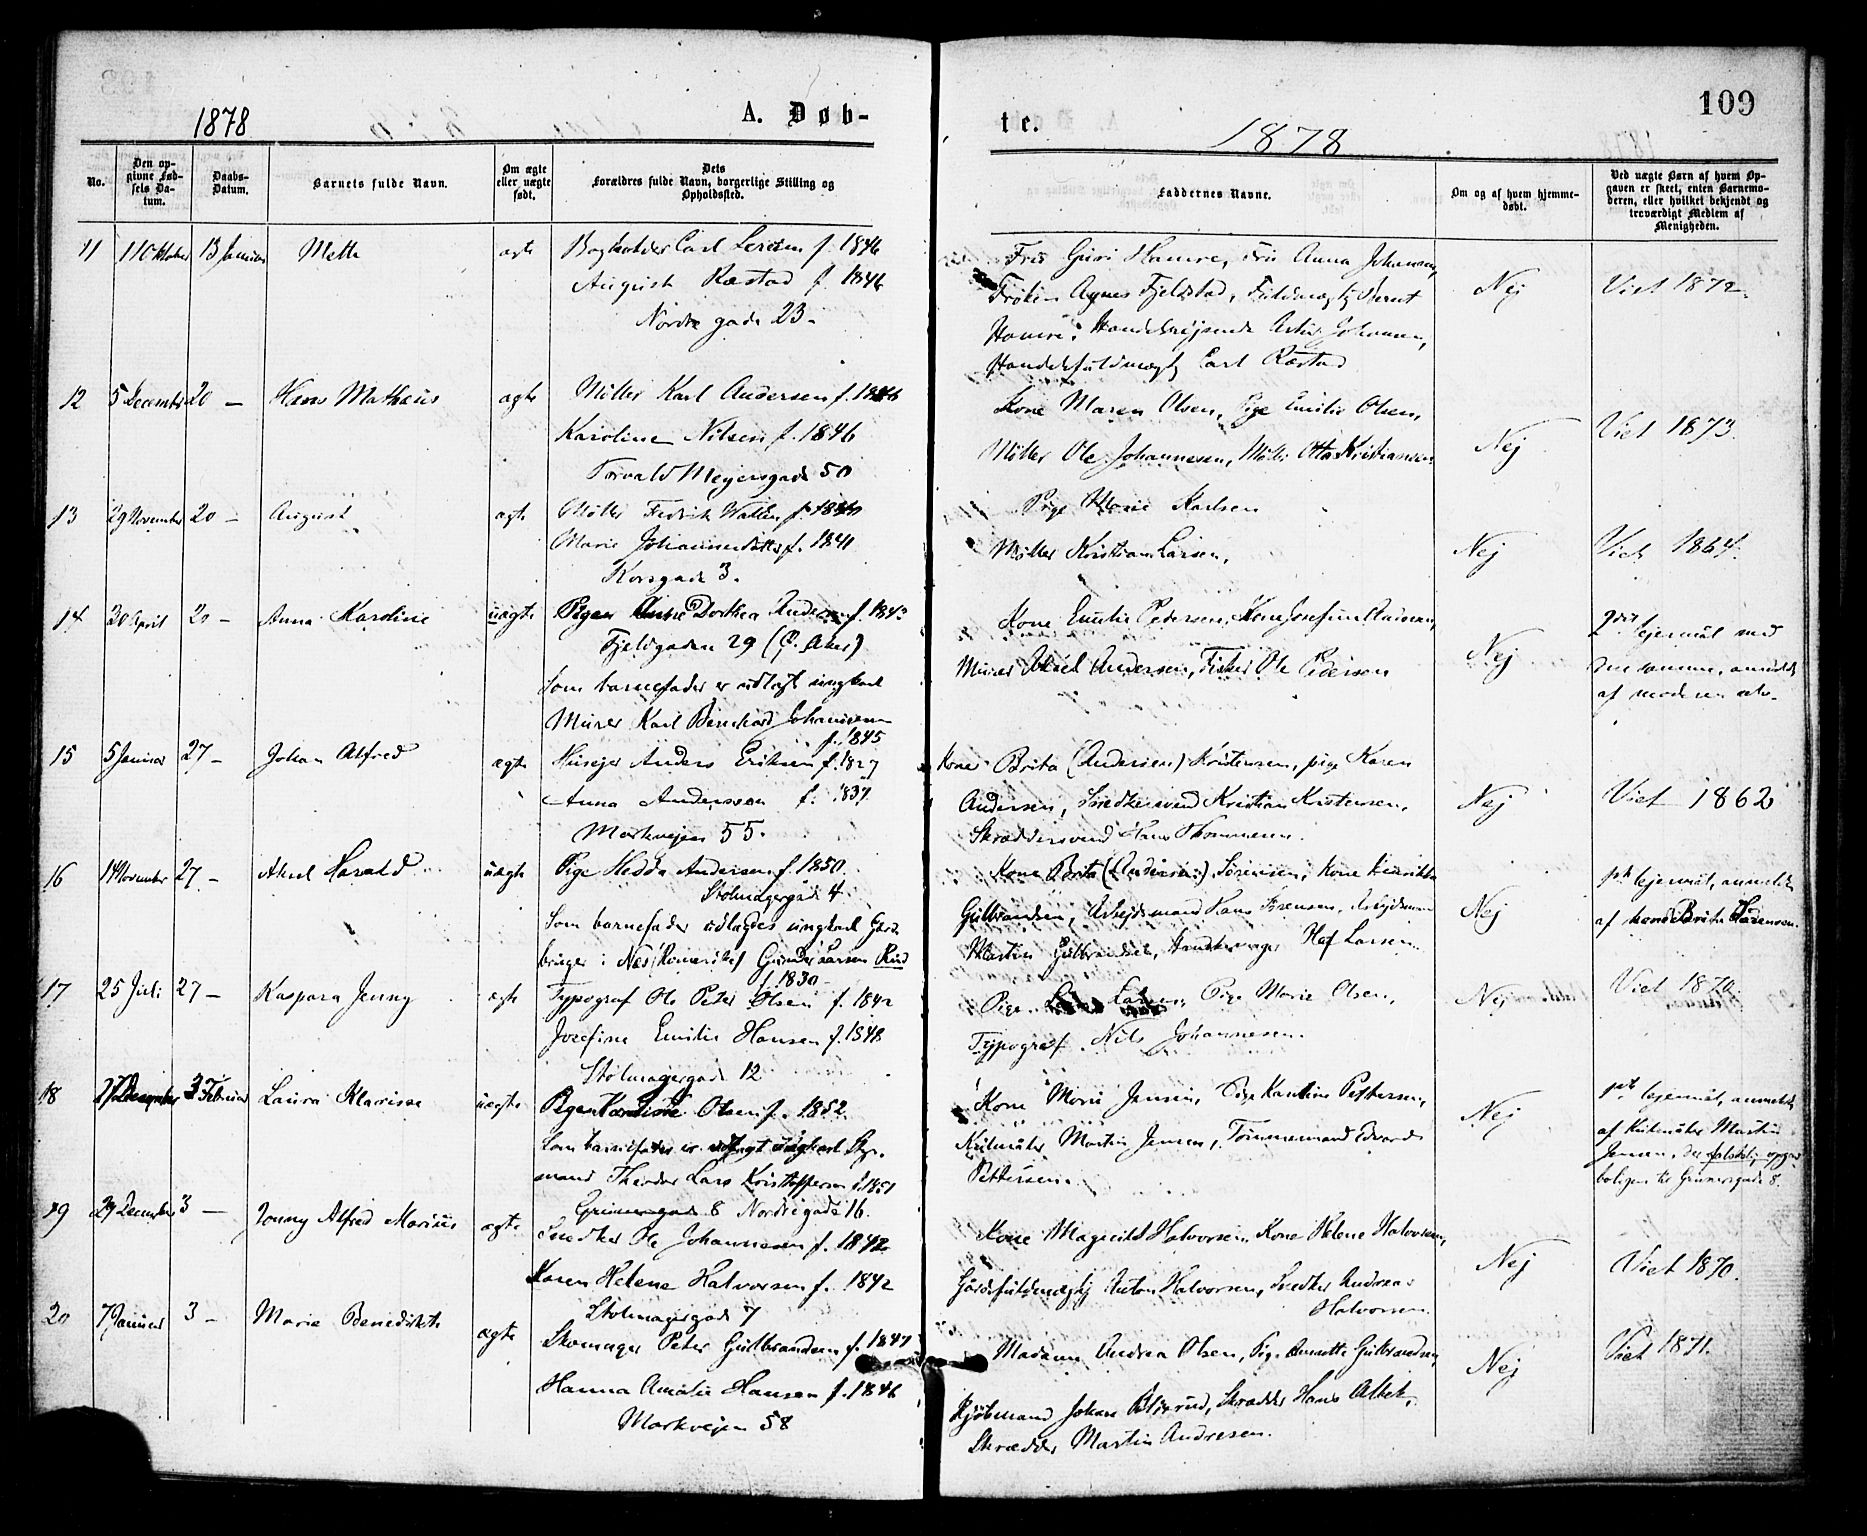 1878
A. Døb-
No.
Den op-
givne Fød-
sels Da-
tum.
Daabs-
Datum.
Barnets fulde Navn.
Om ægte
eller uægte
født.
Dets
Forældres fulde Navn, borgerlige Stilling og
Opholdssted.
11 11 Oktober 13 Januar Mette ægte Bogholder Carl f. 1846
August Ræstad f. 1846
Nordre gade 23.
12 5 December 20 — Hans Mathæus ægte Møller Karl Andersen f. 1846
Karoline Nilsen f. 1846
Torvald Meyersgade 50
13 29 November 20 — August ægte Møller Fredrik f. 1840
Marie f. 1841
Korsgade 3.
14 30 April 20 — Anna Karoline uægte Pigen Anne Dorthea Andersen f. 1843
Fjeldgaden 29 (Ø. Aker)
Som barnefader er udlagt ungkarl
Murer Karl Bernhard Johannesen
f. 1845
15 5 Januar 27 — Johan Alfred ægte Huseier Anders Eriksen f. 1827
Anna Andersson f. 1837
Markvejen 55.
16 14 November 27 — Axel Harald uægte Pige Hedda Andersen f. 1850.
Stolmagergade 4.
Som barnefader udlagdes ungkarl Gård-
bruger i Næs Romerike Gunder Larsen
f. 1830
17 25 Juli 27 — Kaspara Jenny ægte Typograf Ole Peter Olsen f. 1842
Josefine Emilie Hansen f. 1848
Stolmagergade 12
18 27 December 3 Februar Laura Klarisse uægte Pigen Olsen f. 1852
Som barnefader er udlagt ungkarl Styr-
mand Theodor Lars Kristoffersen f. 1851
Grünersgade 8 Nordregade 16.
19 29 December 3 — Jonny Alfred Marius ægte Snedker Ole Johannesen f. 1842
Karen Helene Halvorsen f. 1842
Stolmagergade 7
20 7 Januar 3 — Marie Benedikte ægte Skomager Peter Gulbrandsen f. 1847
Hanna Amalie Hansen f. 1846
Markvejen 58
te.
1878
109
Faddernes Navne.
Om og af hvem hjemme-
døbt.
Ved uægte Barn af hvem Op-
gaven er skeet, enten Barnemo-
deren, eller hvilket bekjendt og
troværdigt Medlem af
Menigheden.
Fru Guri Hamre, Fru Anna Johansen,
Frøken Agnes Fjeldstad, Fuldmægtig Bernt Nej Viet 1872.
Hamre, Handelsrejsende Johansen,
Handelsfuldmægtig Carl Ræstad
Kone Maren Olsen, Pige Emilie Olsen,
Møller Ole Johannesen, Møller Otto Kristiansen Nej Viet 1873.
Pige Marie Karlsen
Møller Kristian Larsen, Nej Viet 1864.
Kone Emilie Pedersen, Kone Josefine Andersen,
Murer Axel Andersen, Fisker Ole Pedersen Nej 2det lejermål med
den samme, anmeldt
af moderen selv.
Kone Brita (Andersen) Kristensen, pige Karen
Andersen, Snedkersvend Kristian Kristensen, Nej Viet 1862
Skræddersvend Hans Thommesen.
Kone Brita (Andersen) Sørensen, Kone Henrikke
Gulbrandsen, Arbejdsmand Hans Sørensen, Arbejdsmand Nej 1ste lejermål, anmeldt
af kone Brita Sørensen.
Martin Gulbrandsen, Larsen
Pige Larsen, Pige Marie Olsen, Nej Viet 1870.
Typograf Nils Johannesen.
Kone Marie Jensen, Pige Karoline Pettersen,
Martin Jensen, Tømmermand Edvard Nej 1ste lejermål, anmeldt
af Martin
Jensen, der
boligen til Grünersgade 8.
Pettersen.
Kone Magnild Halvorsen, Kone Helene Halvorsen,
Gårdsfuldmægtig Anton Halvorsen, Snedker Andreas Nej Viet 1870.
Halvorsen
Madame Andrea Olsen, Pige Annette Gulbrandsen,
Kjøbmand Johan, Skrædder Hans, Nej Viet 1871.
Skrædder Martin Andresen.